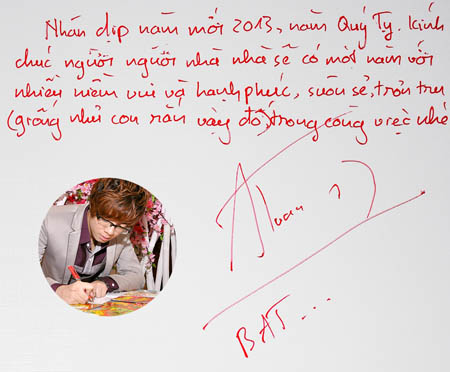 Nhân dịp năm mới 2013, năm Quý Tỵ. Kính
chúc người người nhà nhà sẽ có một năm với
nhiều niềm vui và hạnh phúc, suôn sẻ, trơn tru
(giống như con rắn vậy đó) trong công việc nhé
BAT...